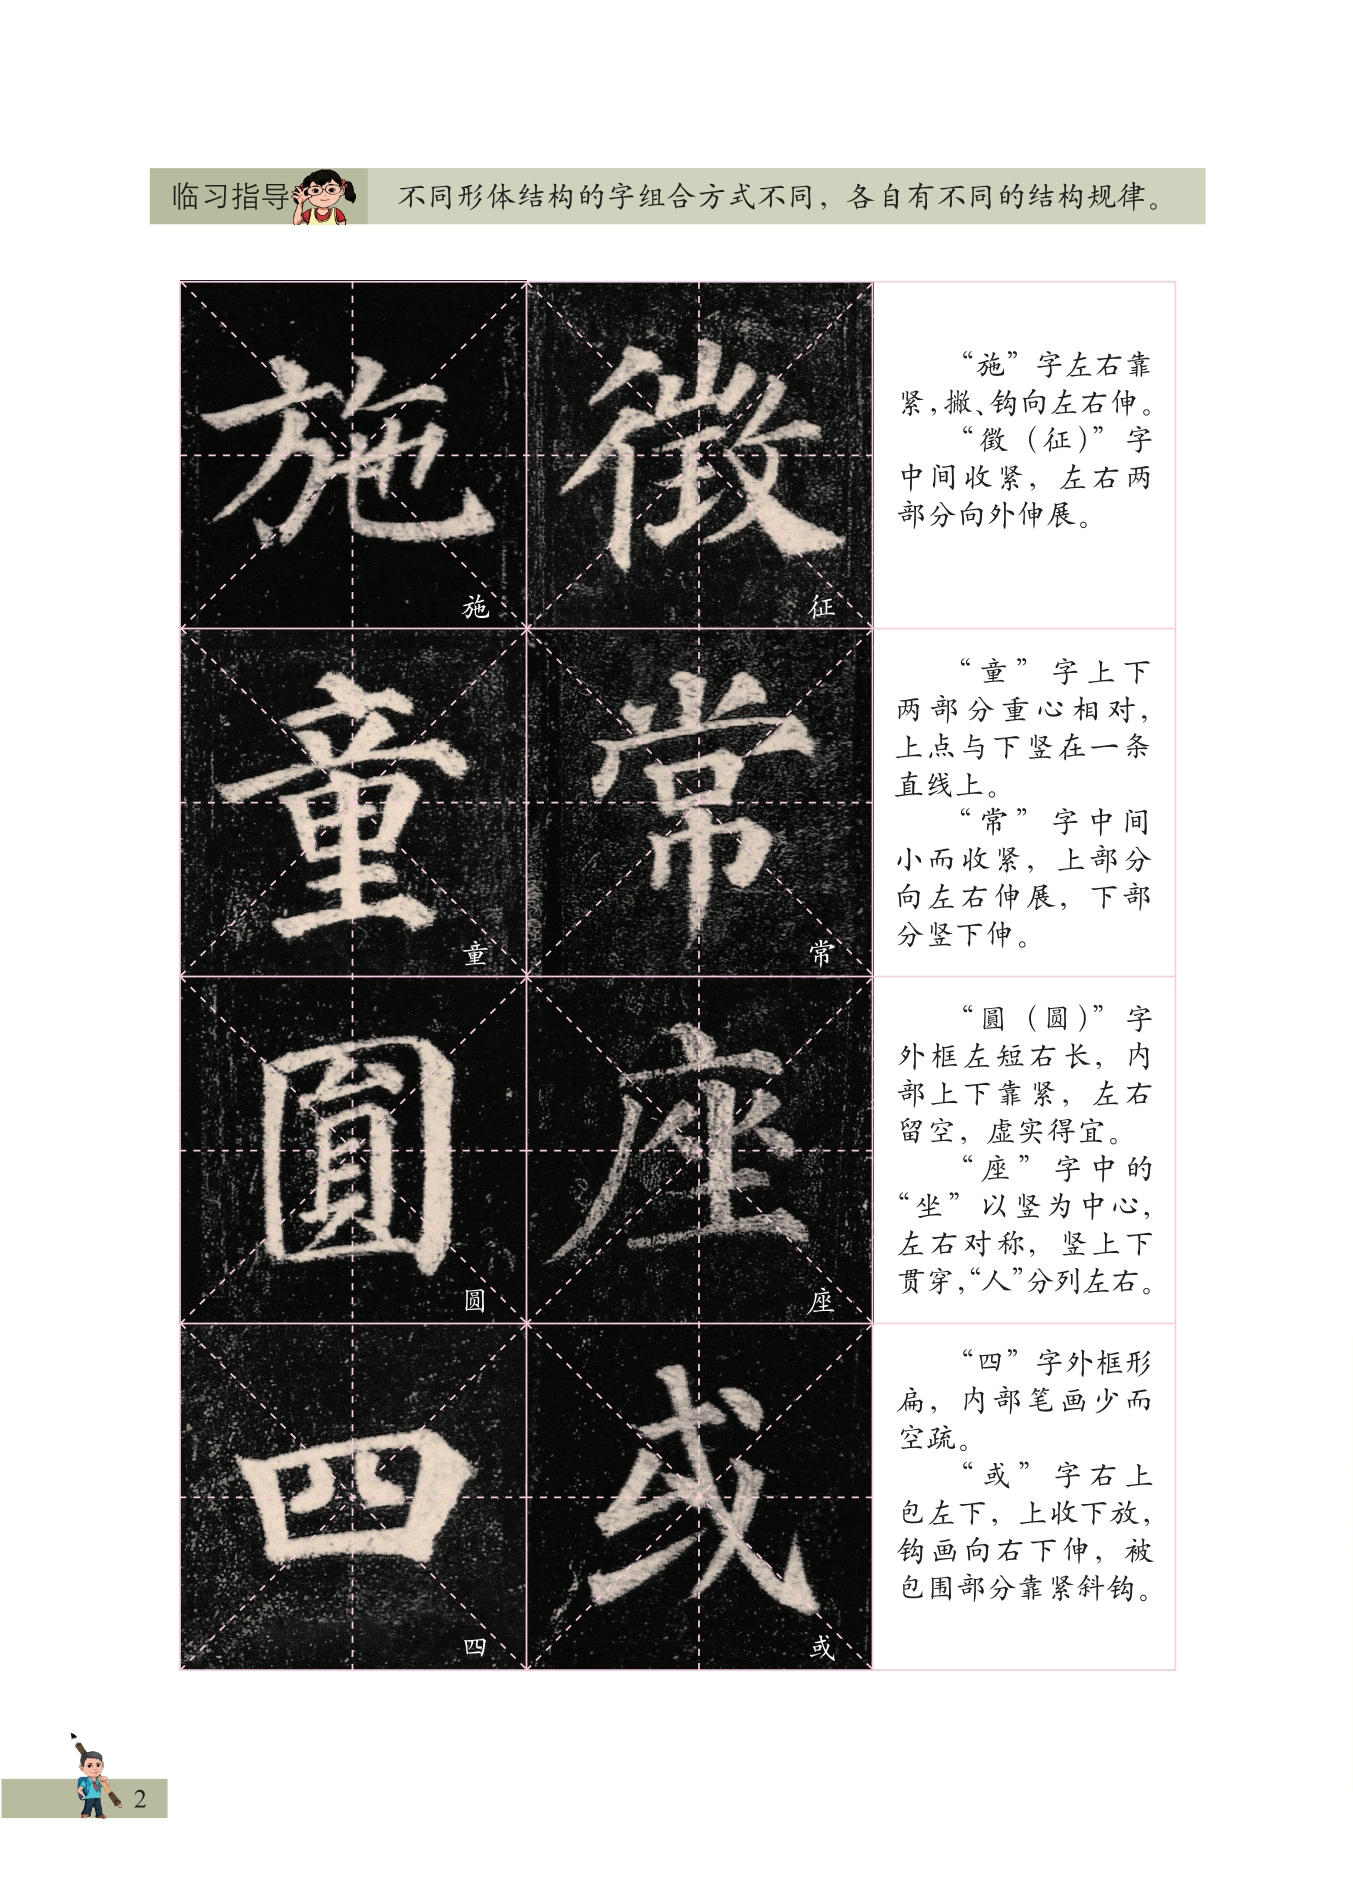 临习指导
不同形体结构的字组合方式不同，各自有不同的结构规律。
施
徵
施
征
“施”字左右靠
紧，撇、钩向左右伸。
“徵（征）”字
中间收紧，左右两
部分向外伸展。
童
常
童
常
“童”字上下
两部分重心相对，
上点与下竖在一条
直线上。
“常”字中间
小而收紧，上部分
向左右伸展，下部
分竖下伸。
圓
座
圆
座
“圓（圆）”字
外框左短右长，内
部上下靠紧，左右
留空，虚实得宜。
“座”字中的
“坐”以竖为中心，
左右对称，竖上下
贯穿，“人”分列左右。
四
或
四
或
“四”字外框形
扁，内部笔画少而
空疏。
“或”字右上
包左下，上收下放，
钩画向右下伸，被
包围部分靠紧斜钩。
2